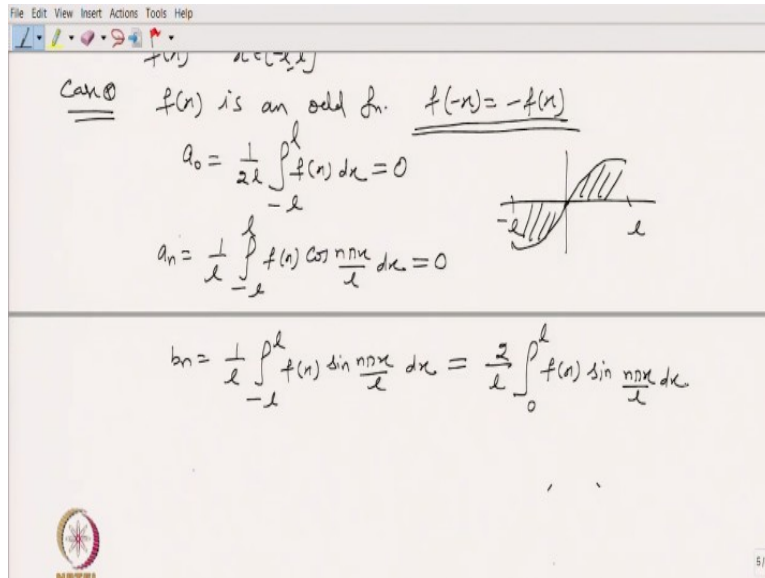 File Edit View Insert Actions Tools Help
f(x) x∈[-l,l]
Case① f(x) is an odd fn. f(-x) = -f(x)
a₀ = 1/2l ∫_{-l}^{l} f(x) dx = 0
-l l
aₙ = 1/l ∫_{-l}^{l} f(x) cos nπx/l dx = 0
bₙ = 1/l ∫_{-l}^{l} f(x) sin nπx/l dx = 2/l ∫_{0}^{l} f(x) sin nπx/l dx
NPTEL